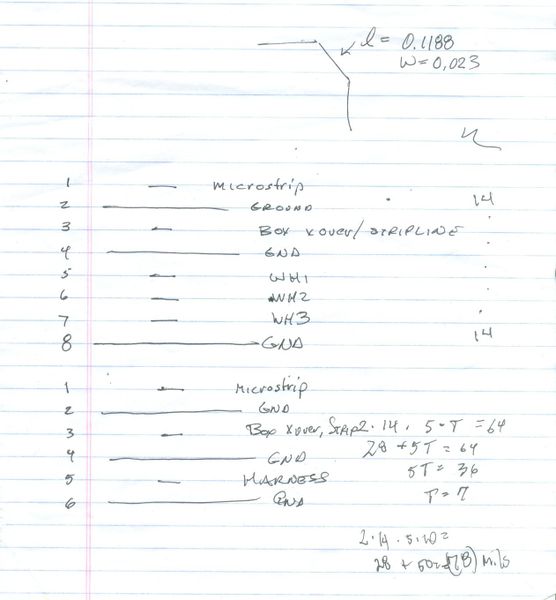 l = 0.1188
W = 0,023
1 microstrip
2 GROUND 14
3 BOX XOVER/STRIPLINE
4 GND
5 WH1
6 WH2
7 WH3
8 GND 14
1 microstrip
2 GND
3 Box Xover, STRIP 2·14. 5·T = 64
4 GND 28 + 5T = 64
5 HARNESS 5T = 36
6 GND T = 7
2·14·5·10 =
28 + 50 = (78) Mils